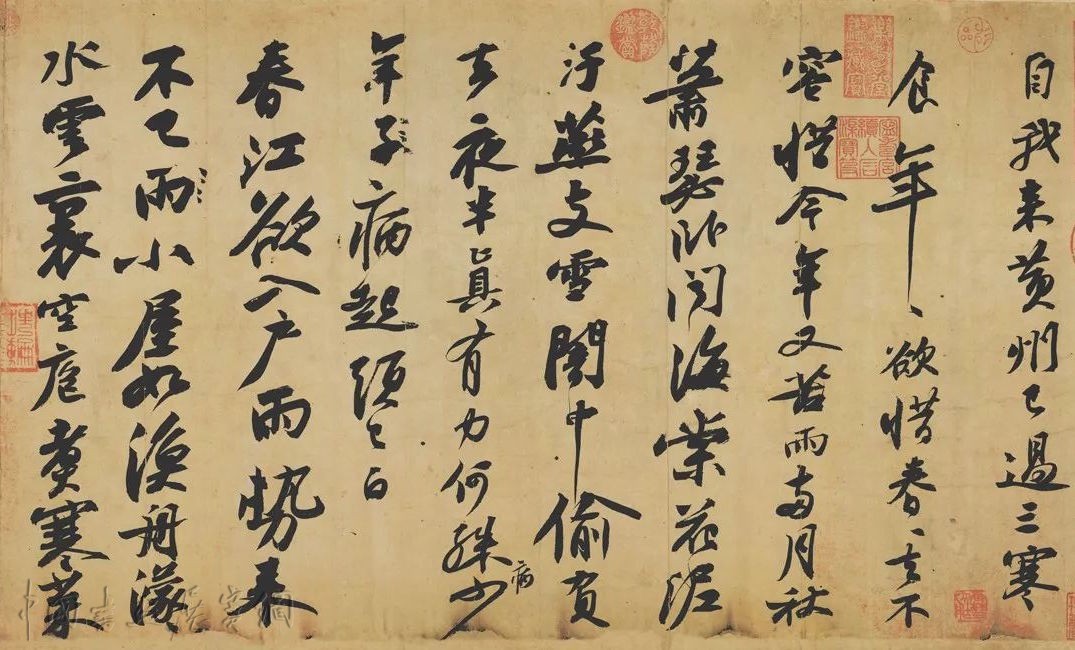 自我来黄州已過三寒
食年、欲惜春、去不
容惜今年又苦雨兩月秋
蕭瑟卧聞海棠花泥
汙燕支雪闇中偷負
去夜半真有力何殊病少
年子病起頭〻白
春江欲入户雨勢来
不已雨小屋如漁舟濛
水雲裏空庖煮寒菜